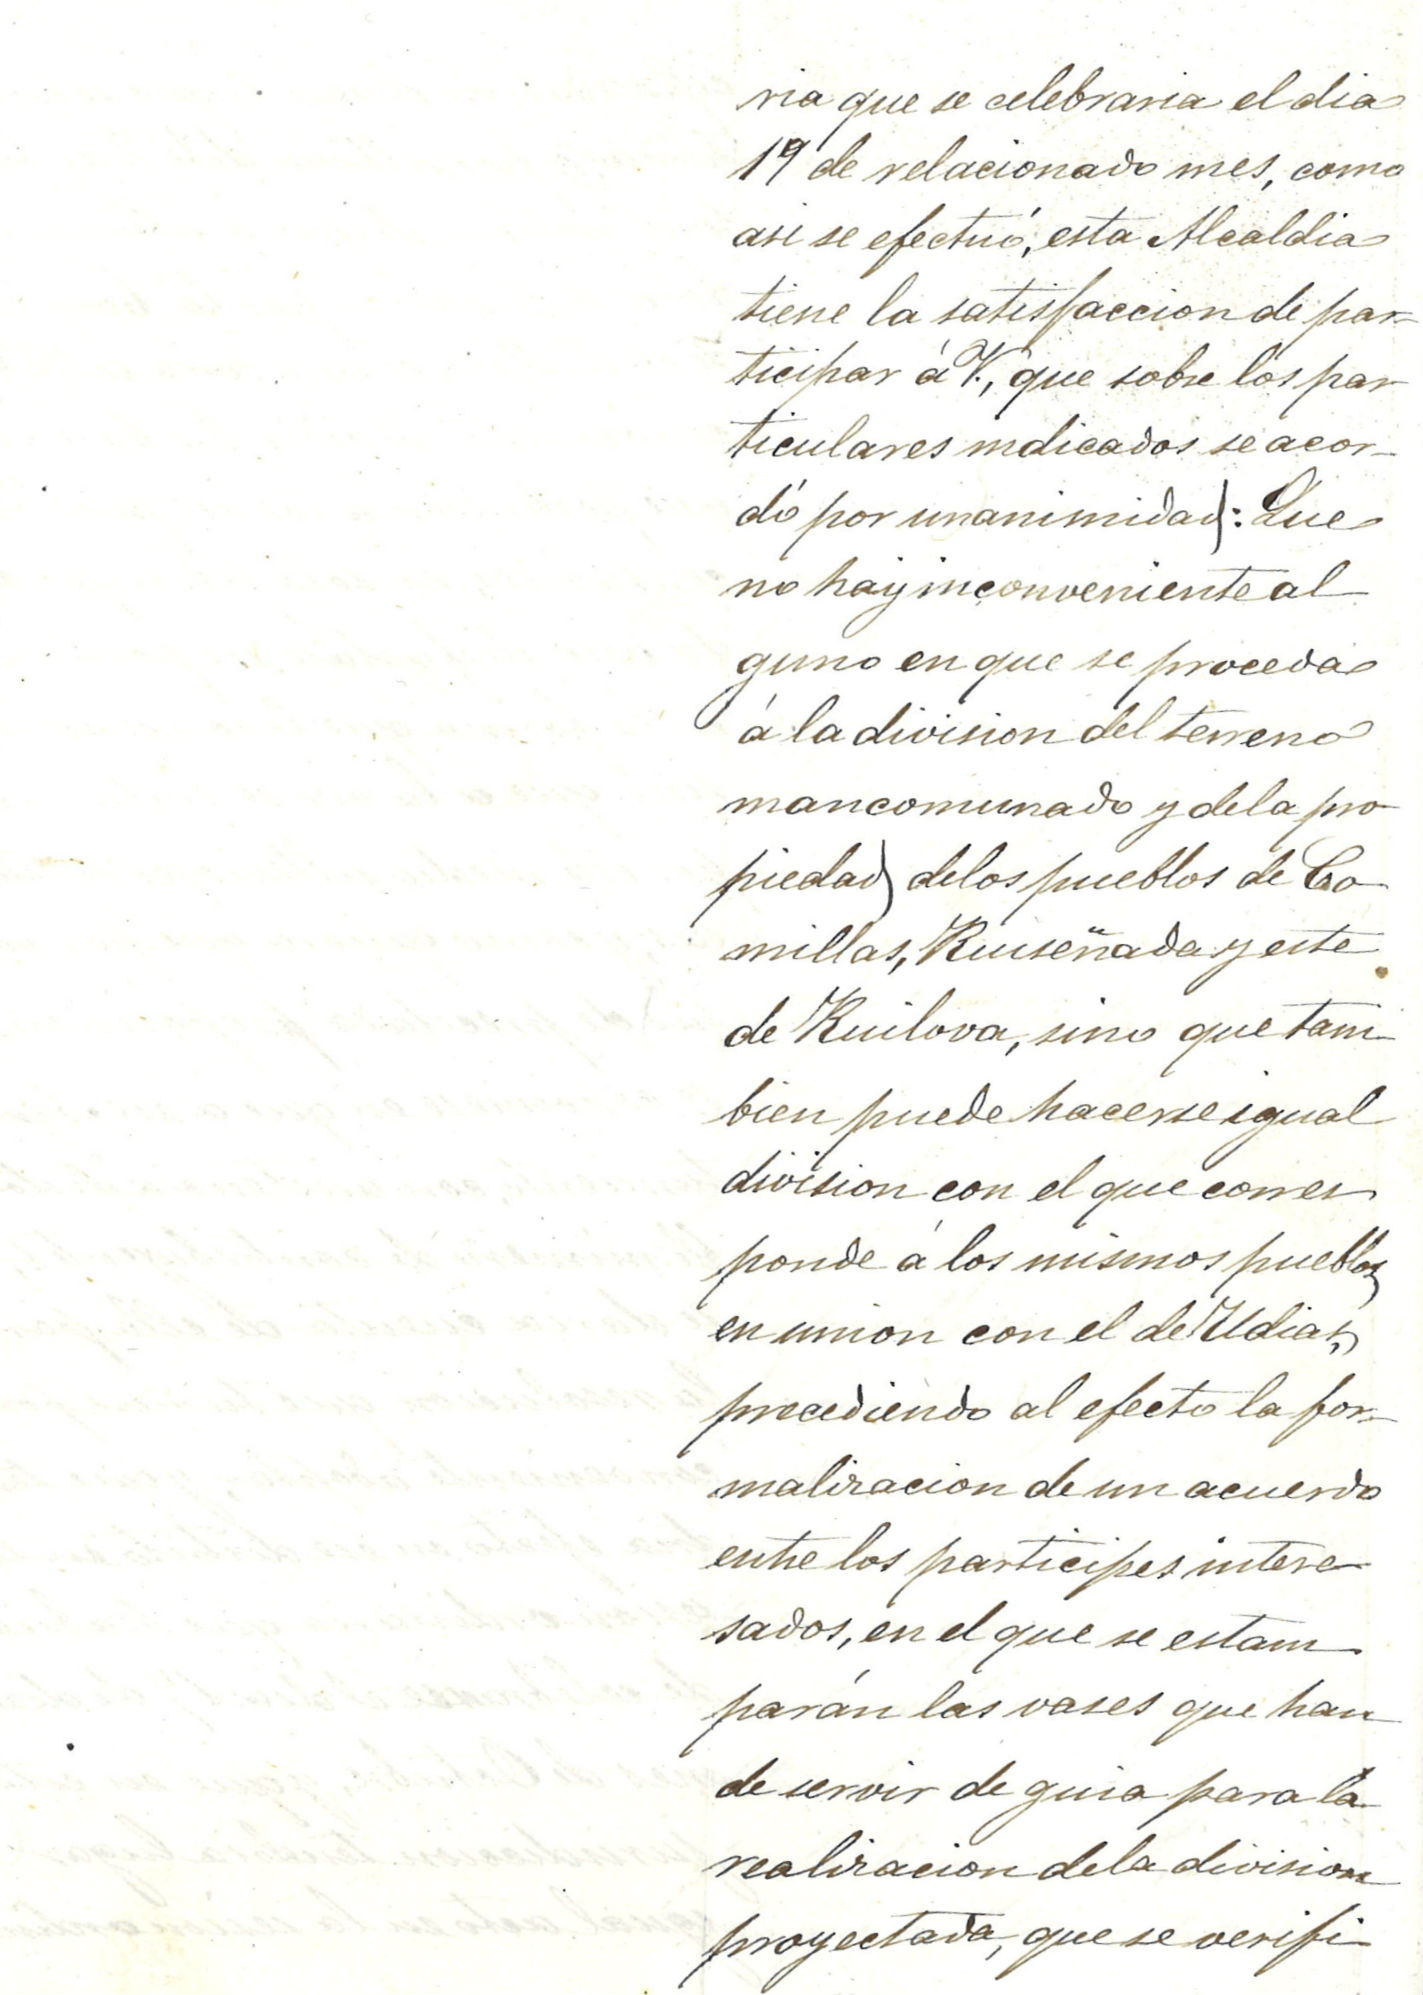 ria que se celebraria el dia
19 de relacionado mes, como
asi se efectuó, esta Alcaldia
tiene la satisfaccion de par-
ticipar á V., que sobre los par
ticulares indicados se acor-
dó por unanimidad: Que
no hay inconveniente al
guno en que se proceda
á la division del terreno
mancomunado y de la pro
piedad de los pueblos de Co
millas, Ruiseñada y este
de Ruilova, sino que tam-
bien puede hacerse igual
division con el que corres
ponde á los mismos pueblos
en union con el de Udias,
precediendo al efecto la for-
malizacion de un acuerdo
entre los participes intere
sados, en el que se estam
parán las vases que han
de servir de guia para la
realizacion de la division
proyectada, que se verifi